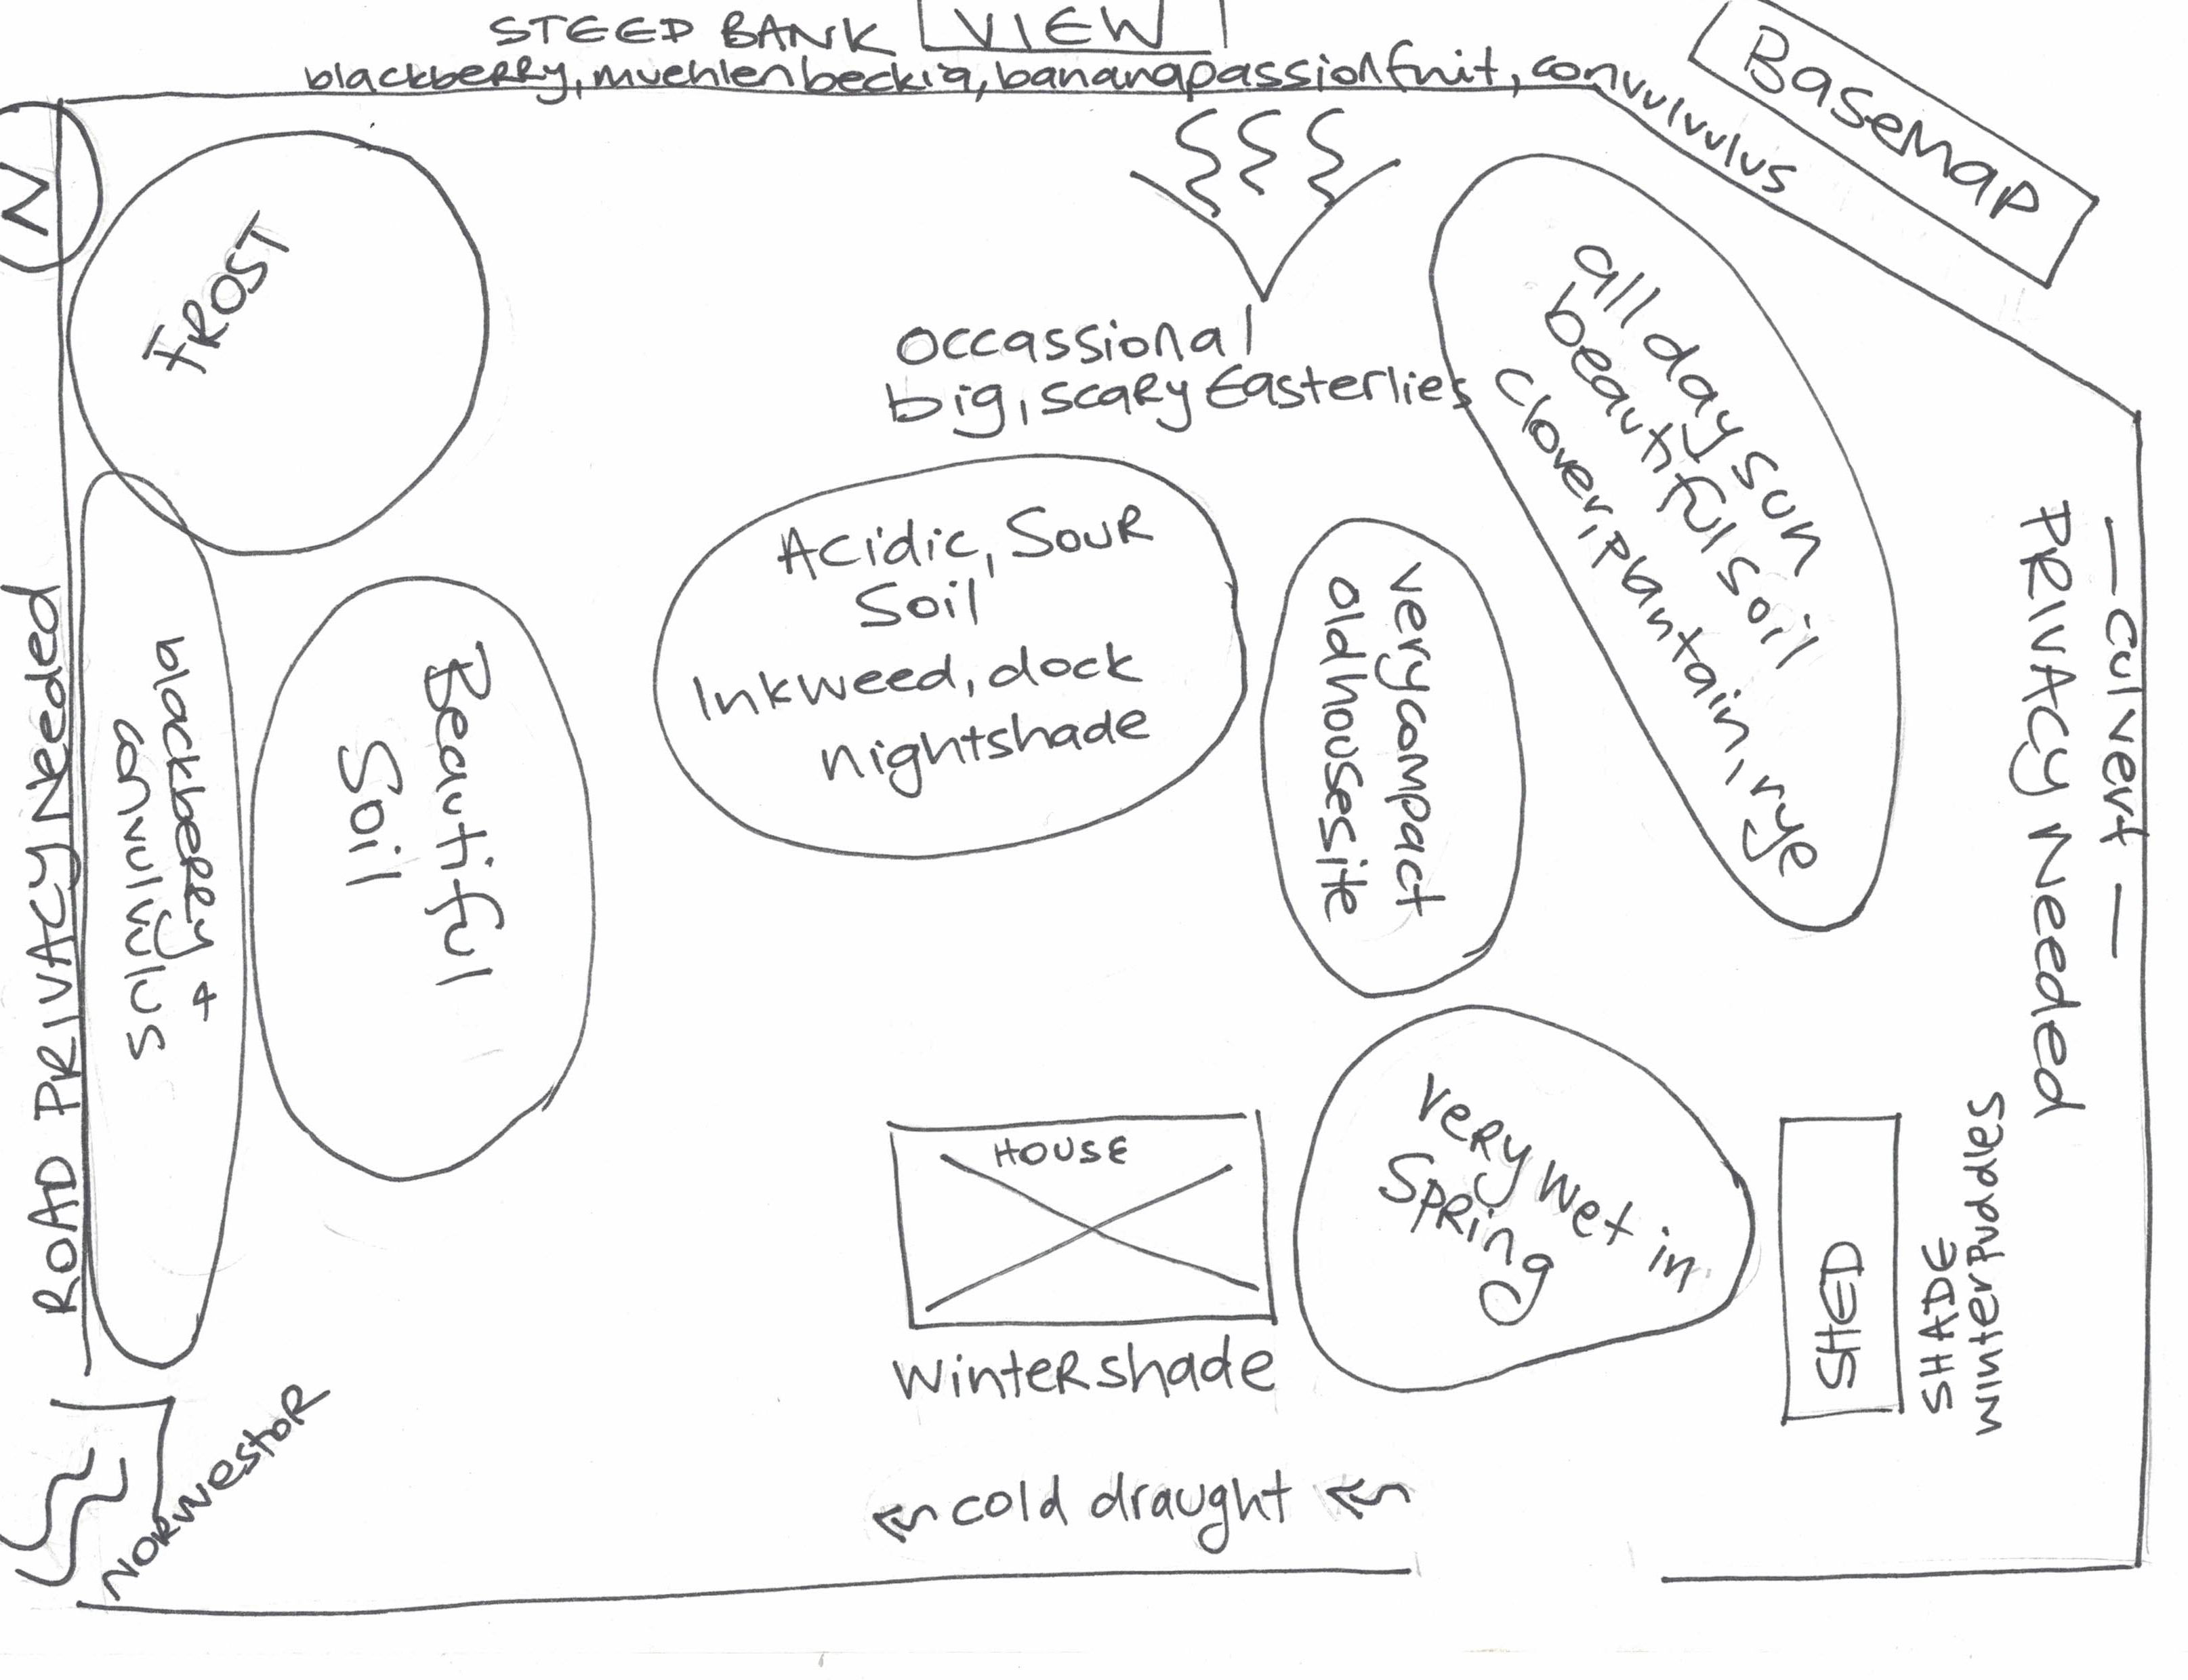 STEEP BANK VIEW
blackberry, muehlenbeckia, bananapassionfruit, convulvulus
BASEMAP
N
FROST
Occassional
big, scary Easterlies
all day sun
beautiful soil
clover, plantain, rye
Acidic, Sour
Soil
Inkweed, dock
nightshade
very compact
old house site
— culvert —
PRIVACY Needed
ROAD PRIVACY Needed
blackberry +
convulvulus
Beautiful
Soil
HOUSE
Winter shade
very wet in
Spring
SHED
SHADE
Winter Puddles
NORWESTOR
cold draught